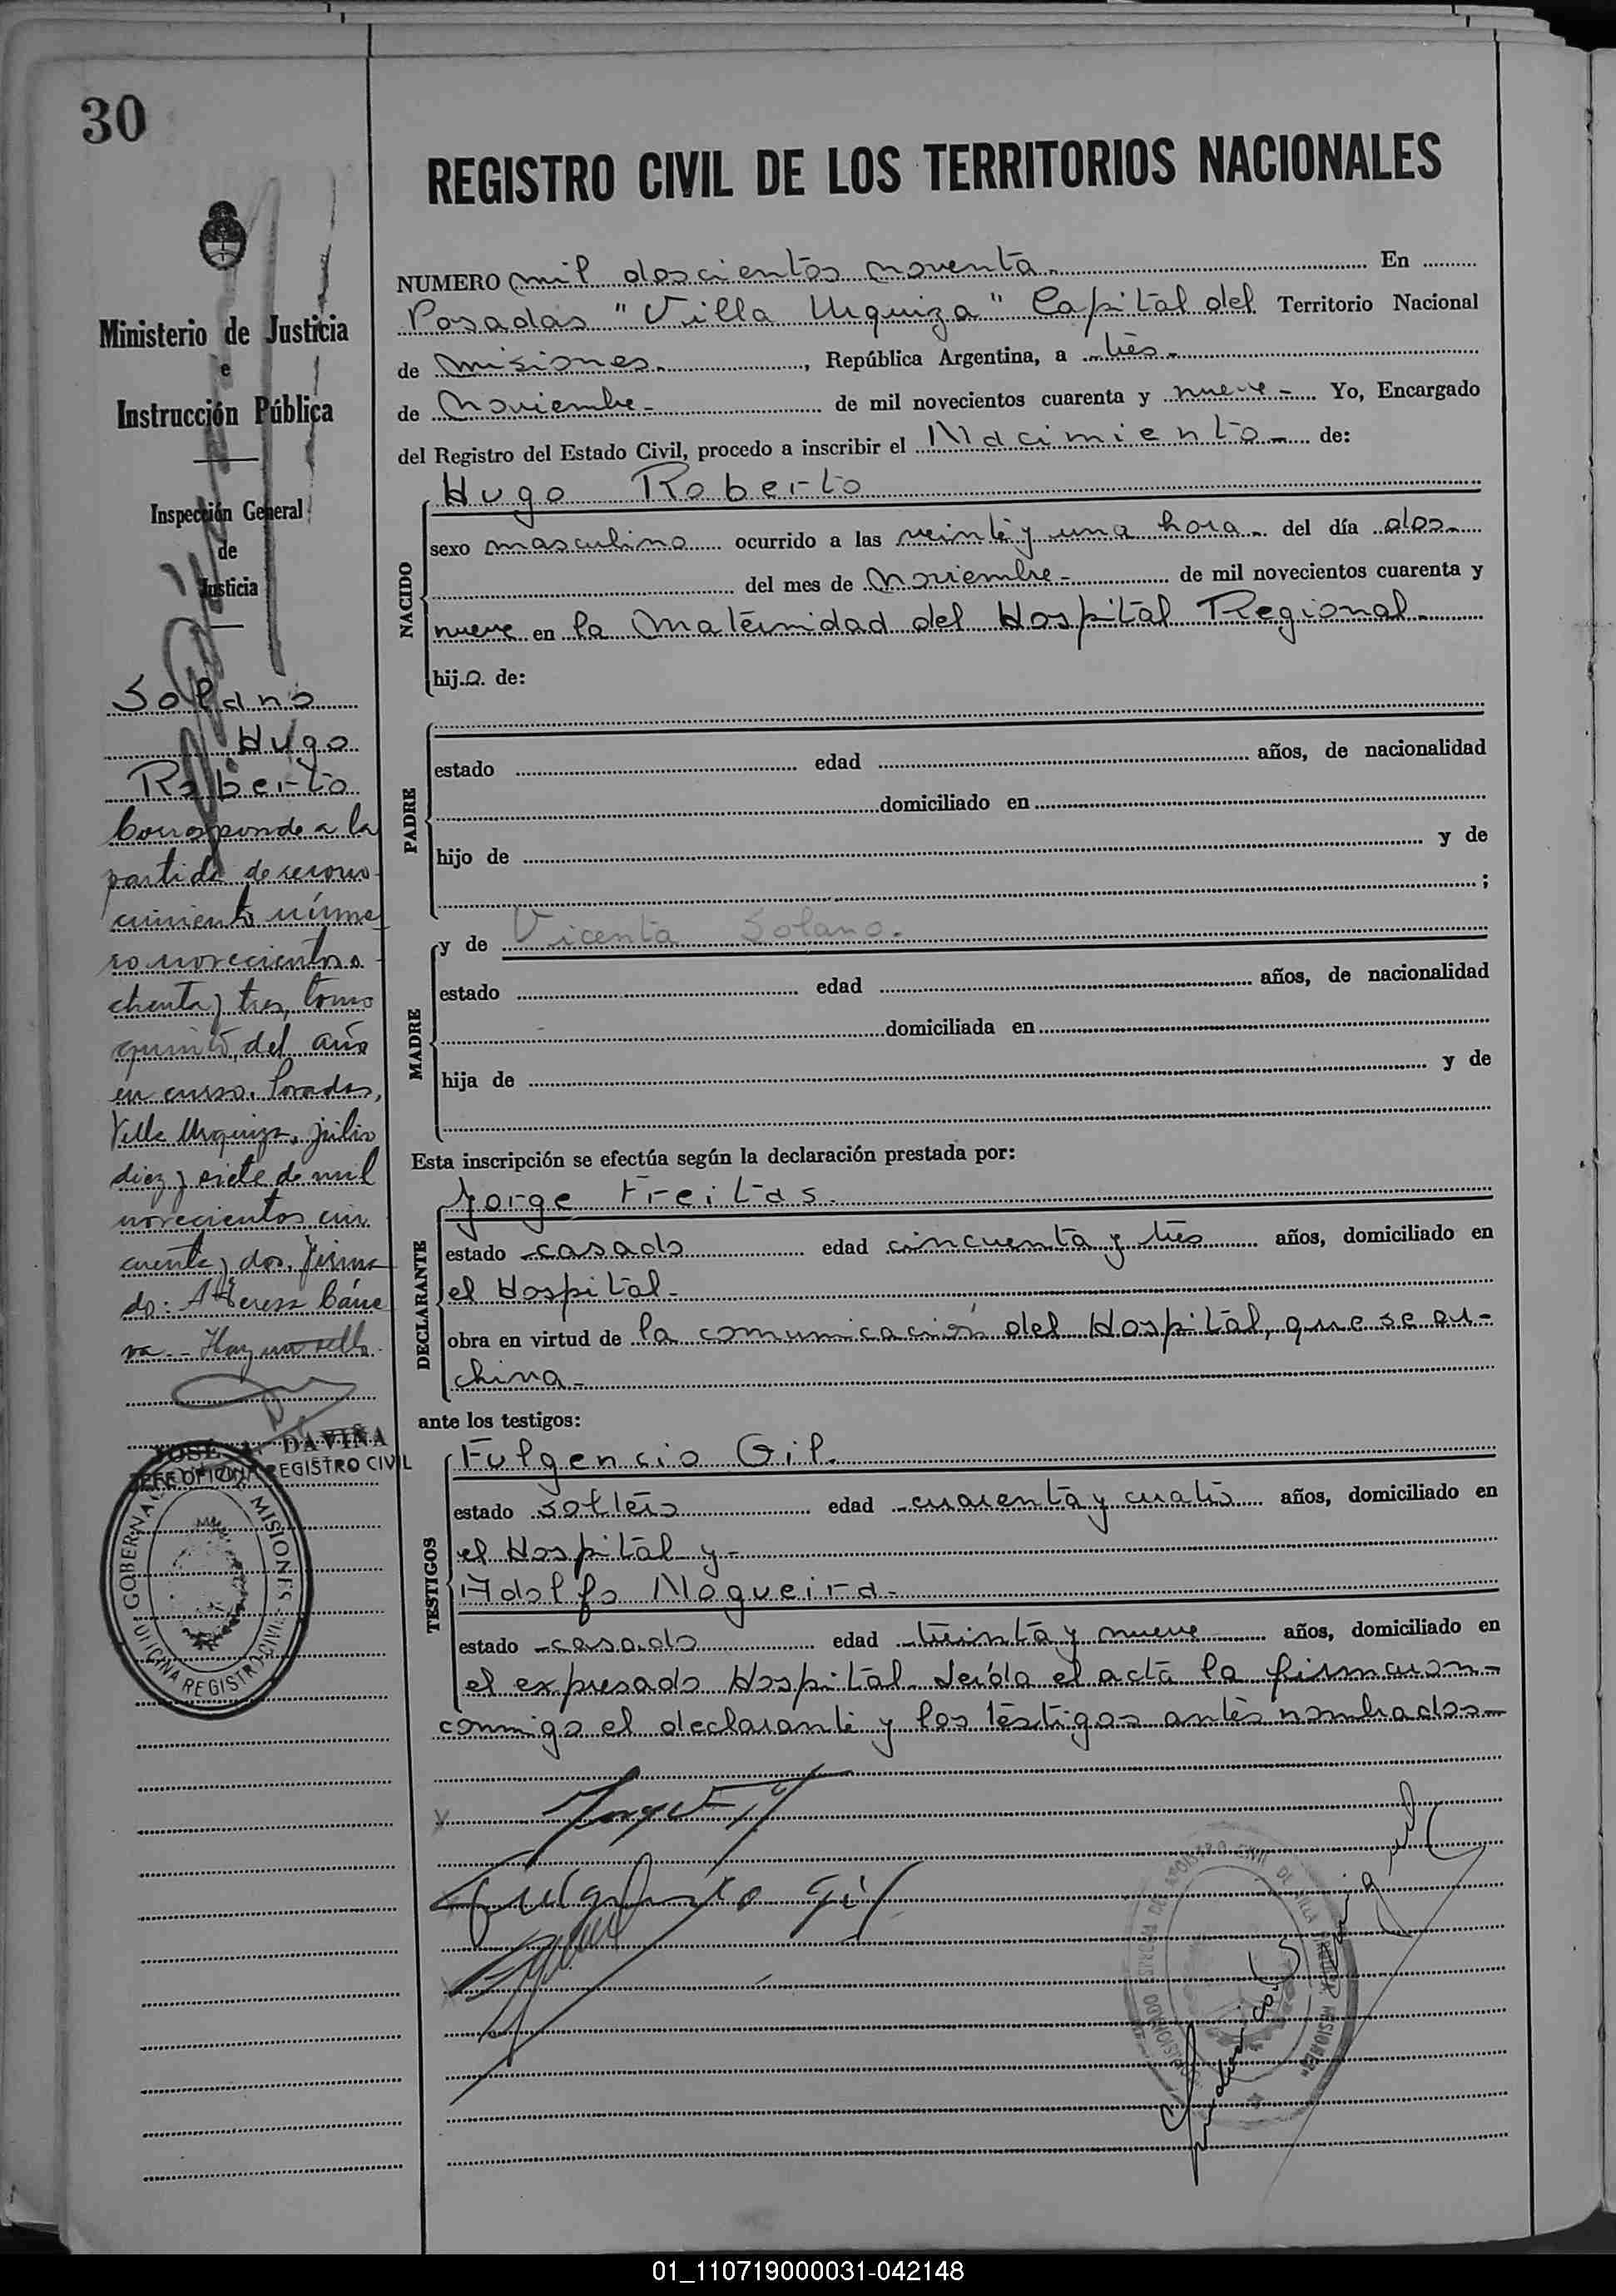 30
REGISTRO CIVIL DE LOS TERRITORIOS NACIONALES
Ministerio de Justicia
e
Instrucción Pública
Inspección General
de
Justicia
Solano
Hugo
Roberto
Corresponde a la
partida de recono-
cimiento núme-
ro novecientos o-
chenta y tres, tomo
quinto, del año
en curso. Posadas,
Villa Urquiza, julio
diez y siete de mil
novecientos cin
cuenta y dos. Firma
do: A Teresa Cáne
va.- Hay un sello.
JOSÉ A. DAVIÑA
JEFE OFICINA REGISTRO CIVIL
MISIONES
OFICINA REGISTRO CIVIL
NUMERO mil doscientos noventa. En
Posadas "Villa Urquiza" Capital del Territorio Nacional
de Misiones., República Argentina, a tres-
de Noviembre- de mil novecientos cuarenta y nueve- Yo, Encargado
del Registro del Estado Civil, procedo a inscribir el Nacimiento- de:
NACIDO
Hugo Roberto
sexo masculino ocurrido a las veinte y una hora- del día dos-
del mes de Noviembre- de mil novecientos cuarenta y
nueve en la Maternidad del Hospital Regional-
hijo de:
PADRE
estado edad años, de nacionalidad
domiciliado en
hijo de y de
;
MADRE
y de Vicenta Solano.
estado edad años, de nacionalidad
domiciliada en
hija de y de
Esta inscripción se efectúa según la declaración prestada por:
DECLARANTE
Jorge Freitas.
estado casado edad cincuenta y tres años, domiciliado en
el Hospital-
obra en virtud de la comunicación del Hospital, que se ar-
chiva-
ante los testigos:
TESTIGOS
Fulgencio Gil.
estado soltero edad cuarenta y cuatro años, domiciliado en
el Hospital y-
Adolfo Nogueira-
estado casado edad treinta y nueve años, domiciliado en
el expresado Hospital. Leída el acta la firmaron-
conmigo el declarante y los testigos antes nombrados-
Fulgencio Gil
01_110719000031-042148